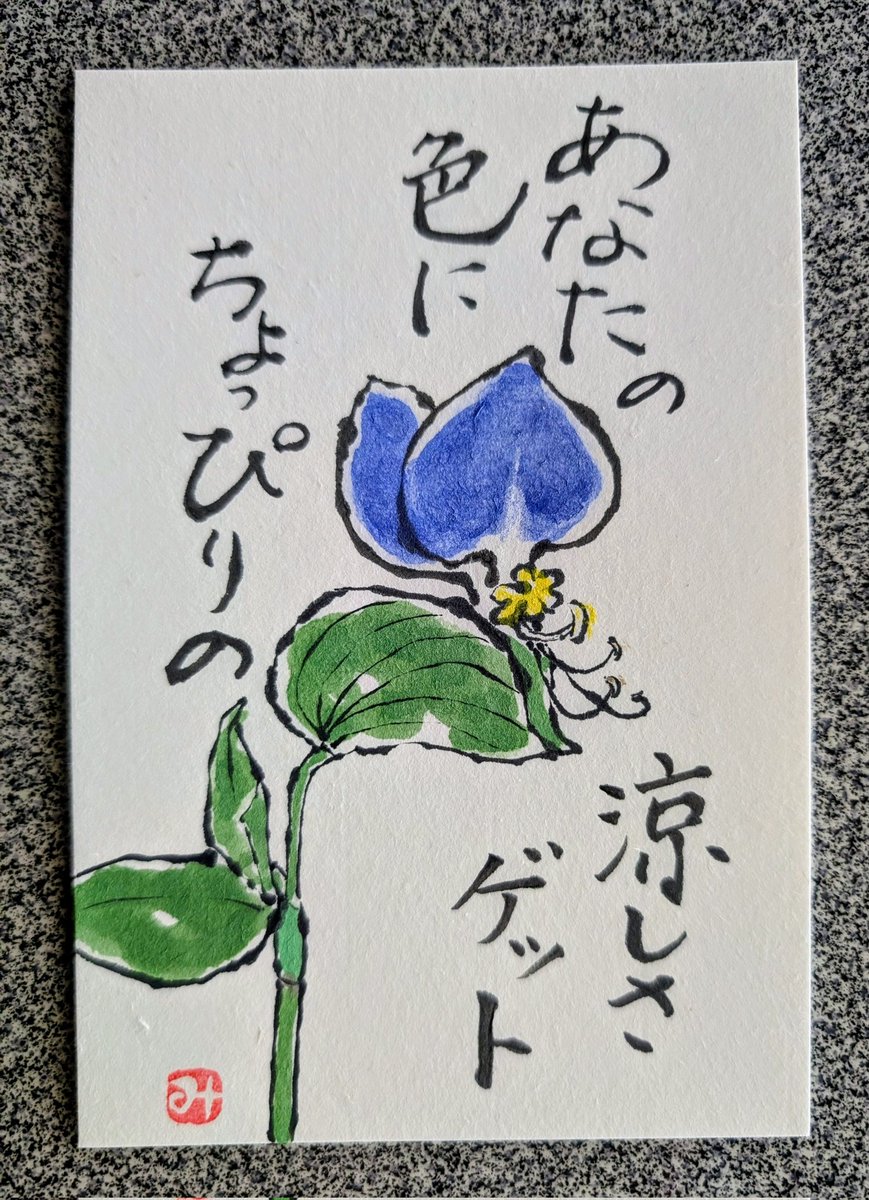 あなたの
色に
ちょっぴりの
涼しさ
ゲット
み